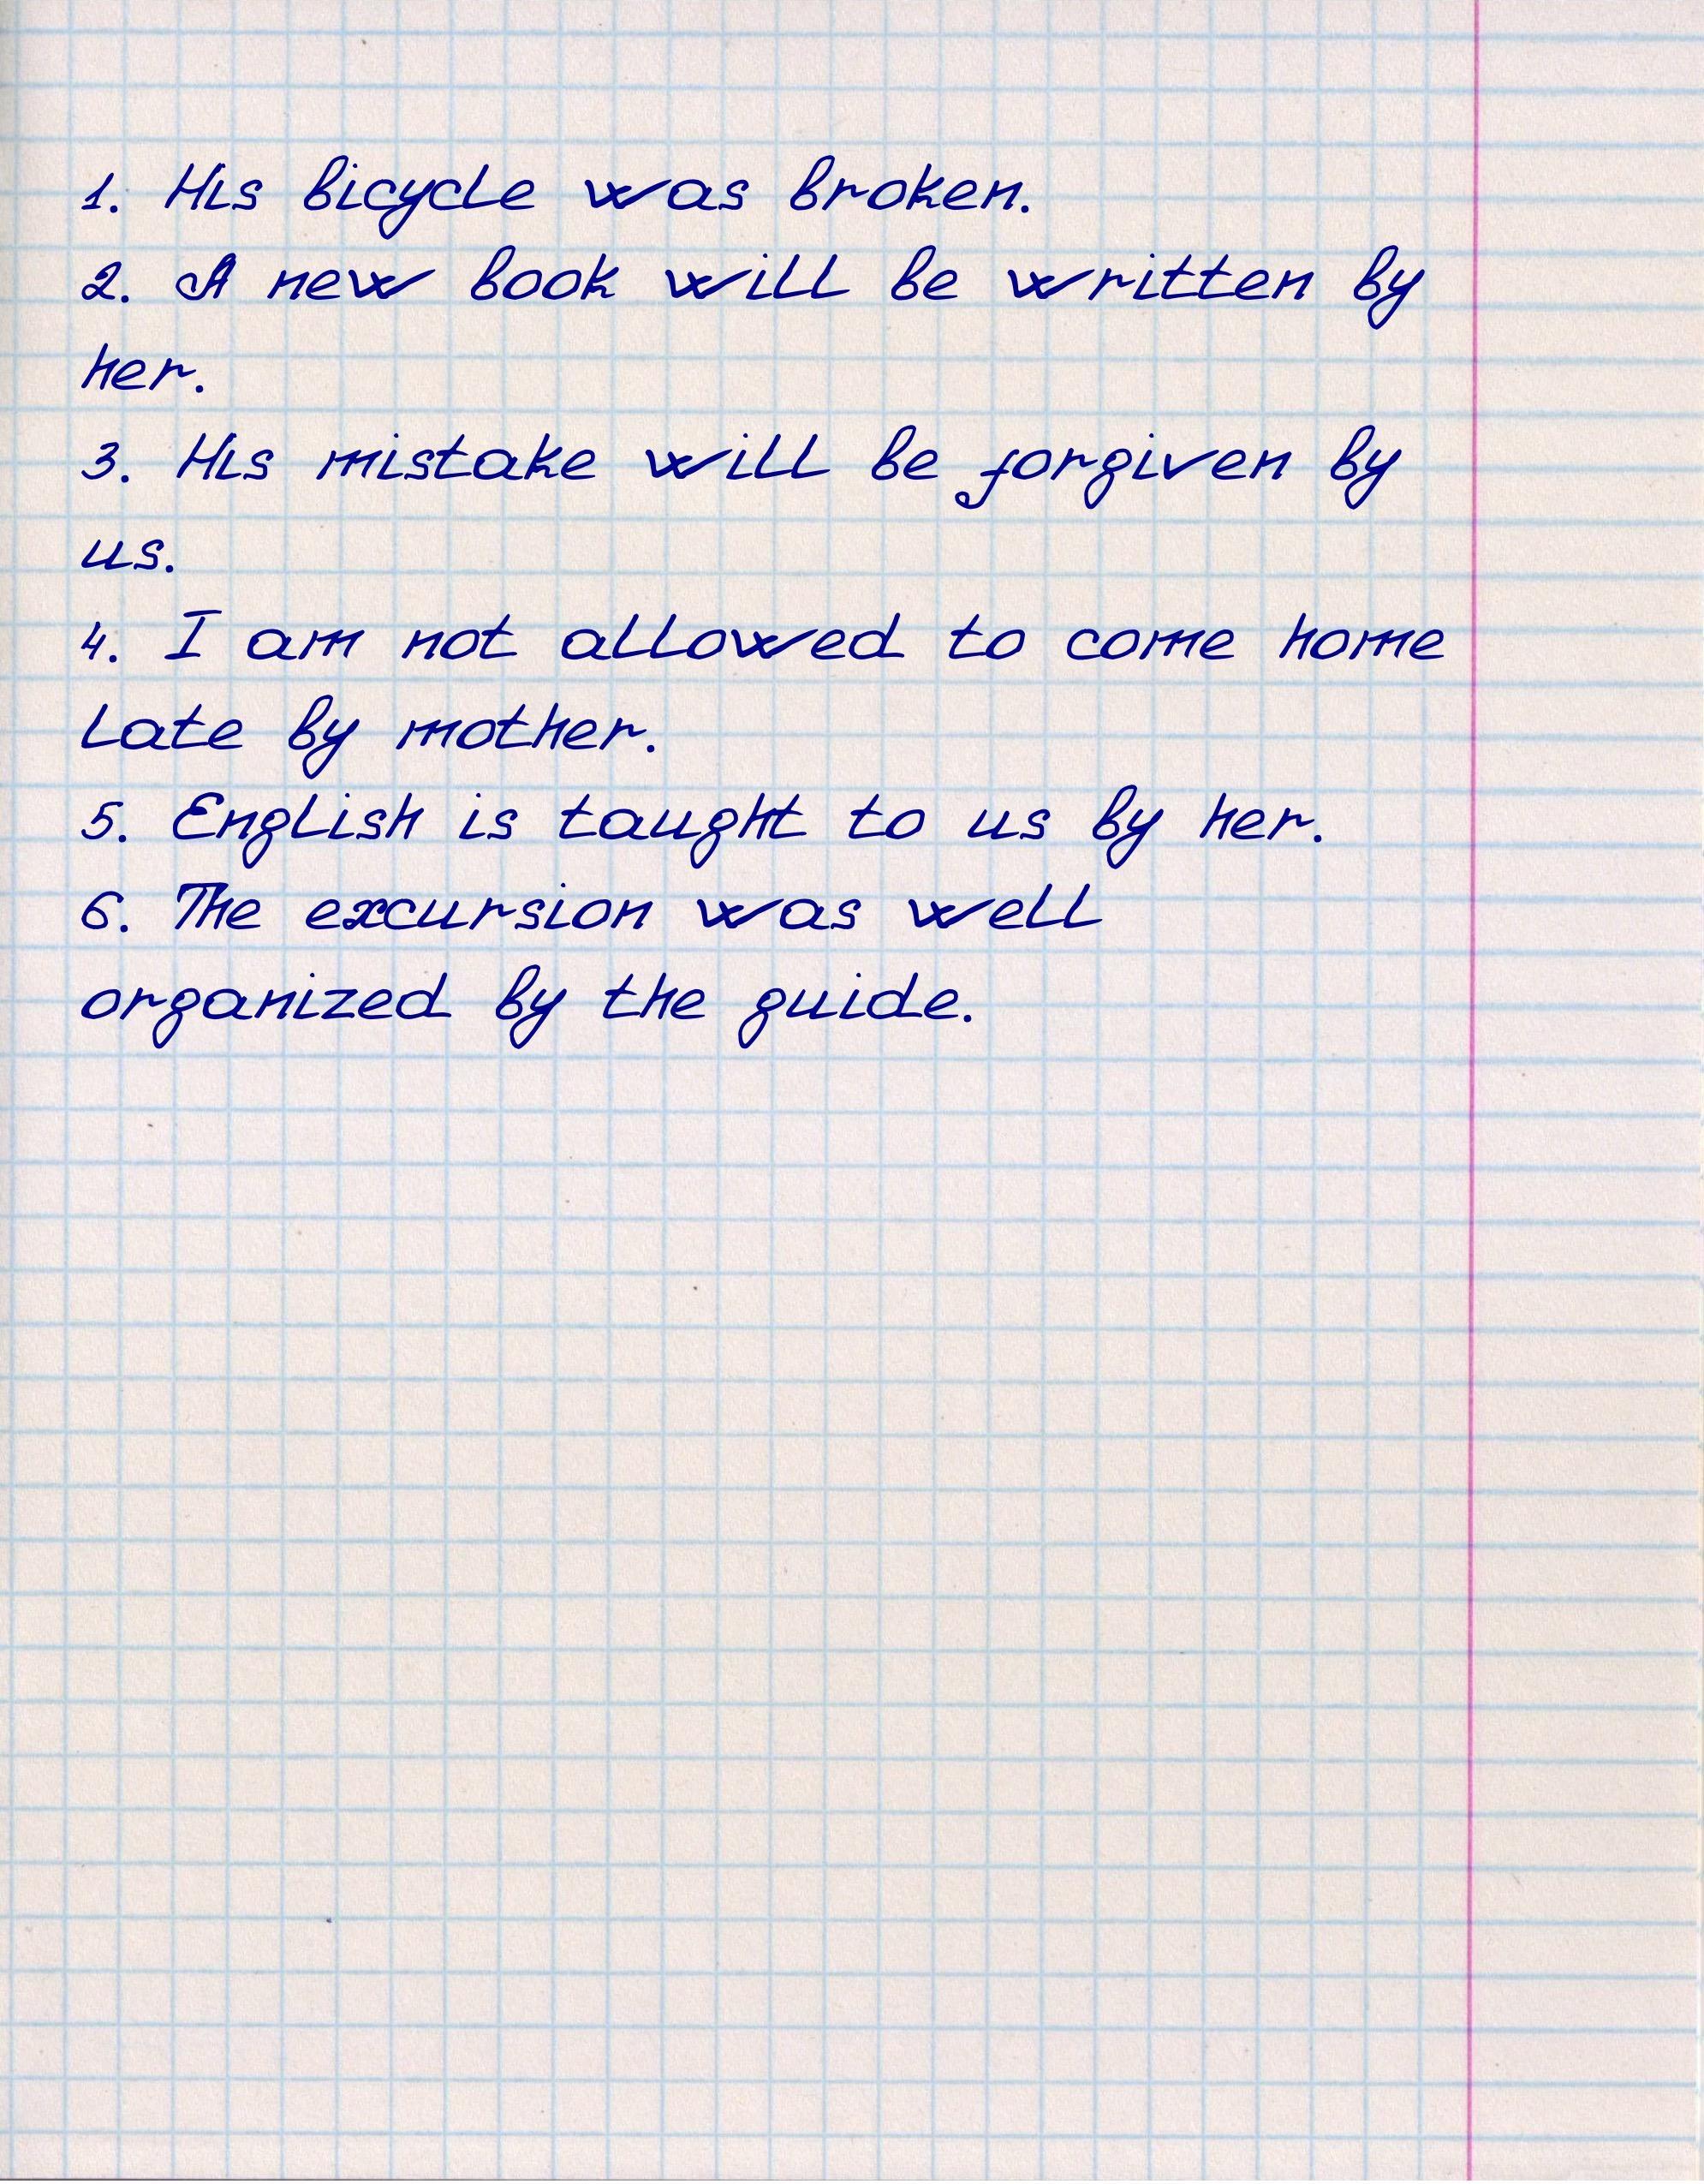 1. His bicycle was broken.
2. A new book will be written by
her.
3. His mistake will be forgiven by
us.
4. I am not allowed to come home
late by mother.
5. English is taught to us by her.
6. The excursion was well
organized by the guide.